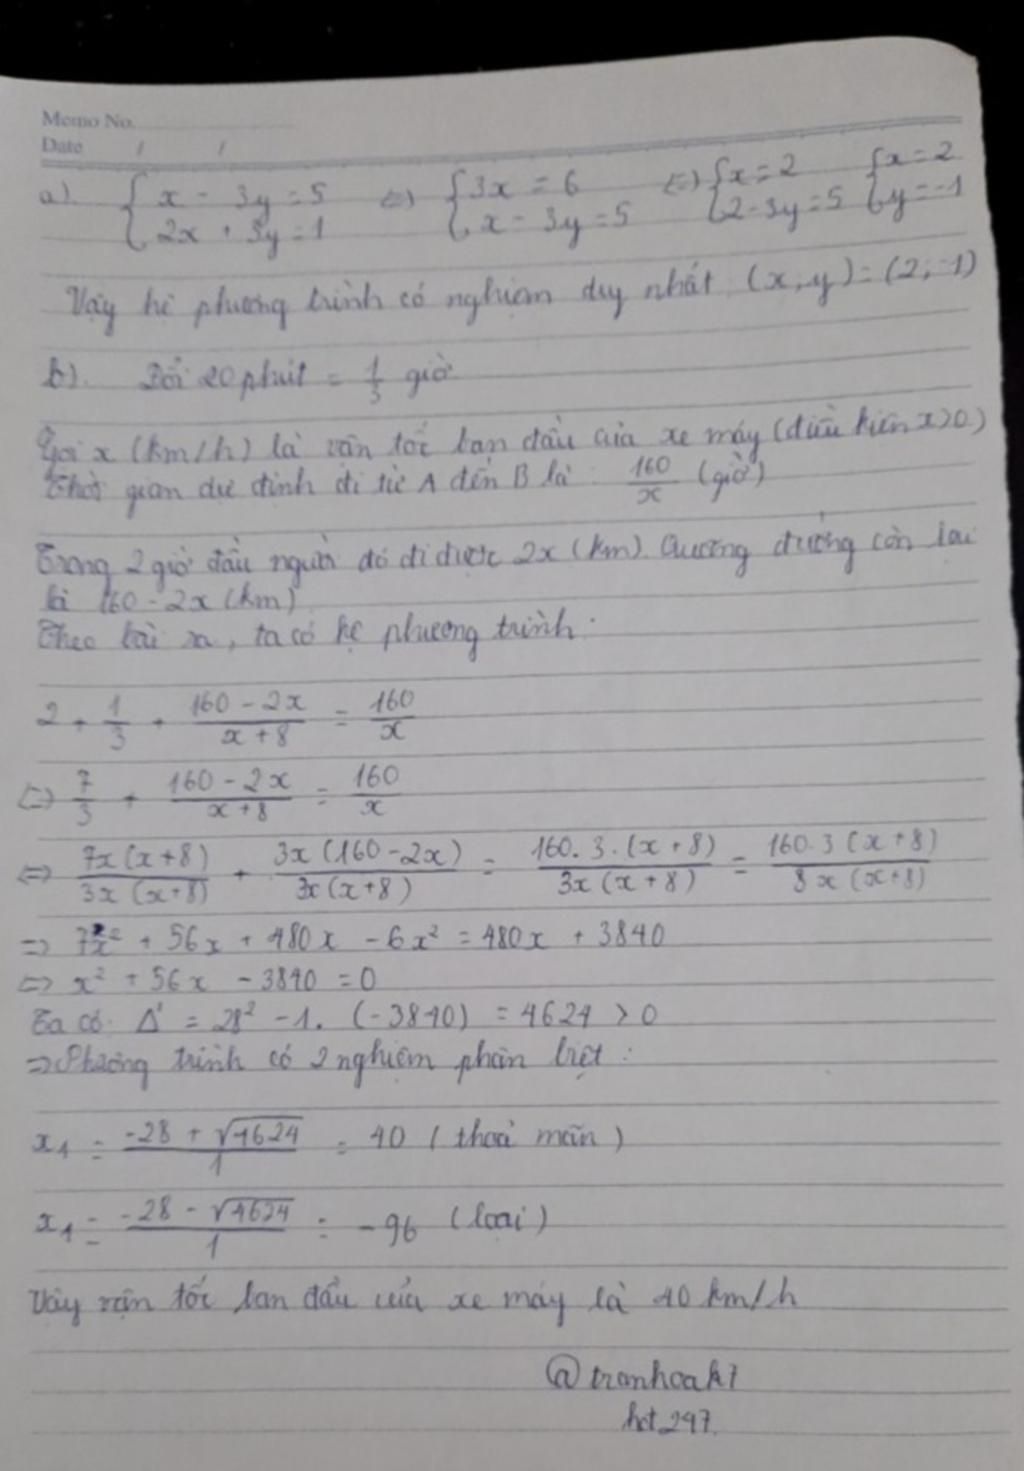 Memo No.
Date / /
a). { x - 3y = 5 ⇔ { 3x = 6 ⇔ { x = 2 { x = 2
2x + 3y = 1 x - 3y = 5 2 - 3y = 5 y = -1
Vậy hệ phương trình có nghiệm duy nhất (x;y) = (2;-1)
b). Đổi 20 phút = 1/3 giờ
Gọi x (km/h) là vận tốc ban đầu của xe máy (điều kiện x>0)
Thời gian dự định đi từ A đến B là : 160/x (giờ)
Trong 2 giờ đầu người đó đi được 2x (km). Quường đường còn lại
là 160 - 2x (km)
Theo bài ra, ta có hệ phương trình :
2 + 1/3 + (160 - 2x)/(x + 8) = 160/x
⇔ 7/3 + (160 - 2x)/(x + 8) = 160/x
⇔ 7x(x+8)/3x(x+8) + 3x(160-2x)/3x(x+8) = 160.3.(x+8)/3x(x+8) = 160.3(x+8)/3x(x+8)
⇒ 7x² + 56x + 480x - 6x² = 480x + 3840
⇔ x² + 56x - 3840 = 0
Ta có: Δ' = 28² - 1. (-3840) = 4624 > 0
⇒ Phương trình có 2 nghiệm phân biệt :
x₁ = (-28 + √4624)/1 = 40 (thoả mãn)
x₁ = (-28 - √4624)/1 = -96 (loại)
Vậy vận tốc ban đầu của xe máy là 40 km/h
@tranhoak7
hct297.